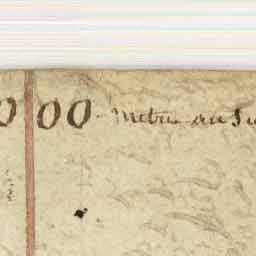 0 00. Metres au Su